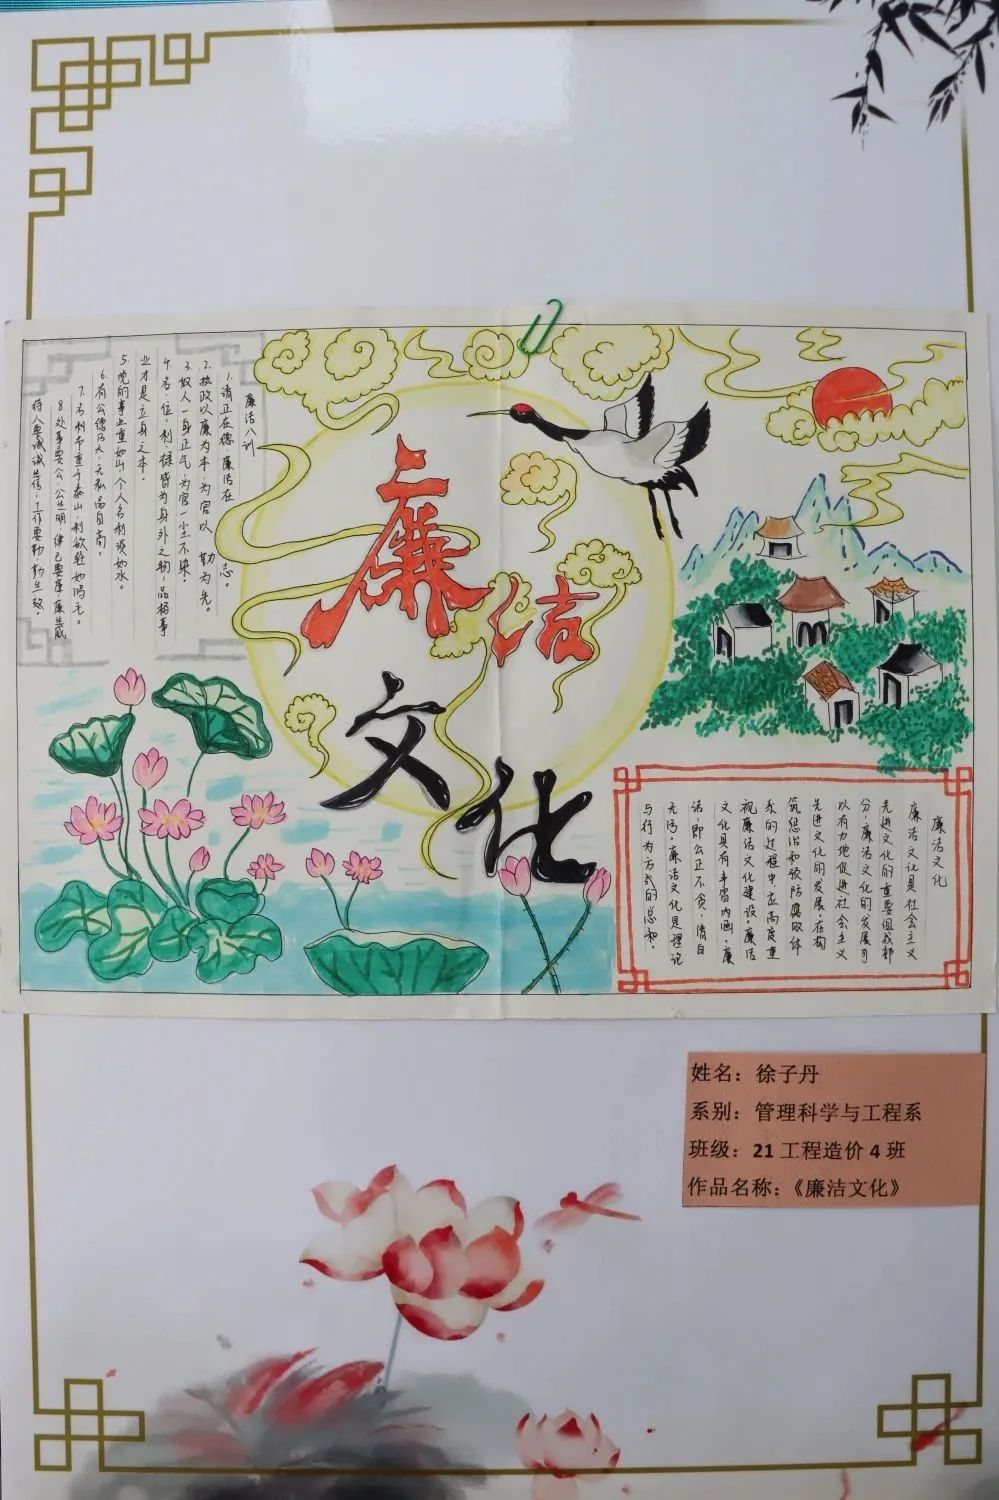 廉洁文化
廉洁八训
1. 清正在德，廉洁在志。
2. 执政以廉为本，为官以勤为先。
3. 做人一身正气，为官一尘不染。
4. 名、位、利、禄皆为身外之物，品格事
业才是立身之本。
5. 党的事业重如山，个人名利淡如水。
6. 有公德乃大，无私品自高。
7. 重于泰山，利欲轻如鸿毛。
8. 处事要公，公生明，律己要廉，廉生威
待人要诚，诚生信，工作要勤，勤生效。
廉洁文化
廉洁文化是社会主义
先进文化的重要组成部
分，廉洁文化的发展可
以有力地促进社会主义
先进文化的发展，在构
筑惩治和预防腐败体
系的过程中，应高度重
视廉洁文化建设，廉洁
文化具有丰富内涵，廉
洁，即公正不贪，清白
无污，廉洁文化是理论
与行为方式的总和。
姓名：徐子丹
系别：管理科学与工程系
班级：21 工程造价 4 班
作品名称：《廉洁文化》